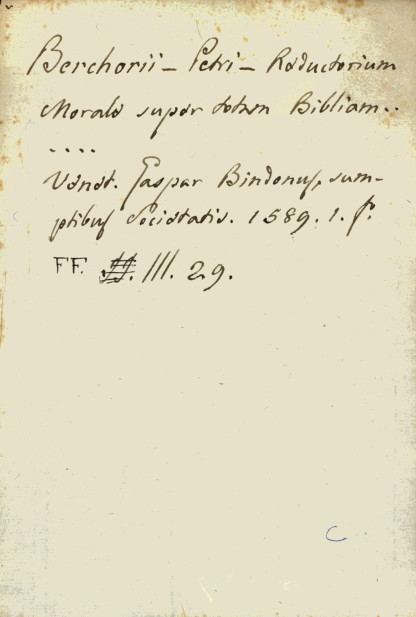 Berchorii - Petri - Reductorium
Morale super totam Bibliam..
....
Venet. Gaspar Bindonus, sum-
ptibus Societatis. 1589. 1. f.
FF. III. 29.
C